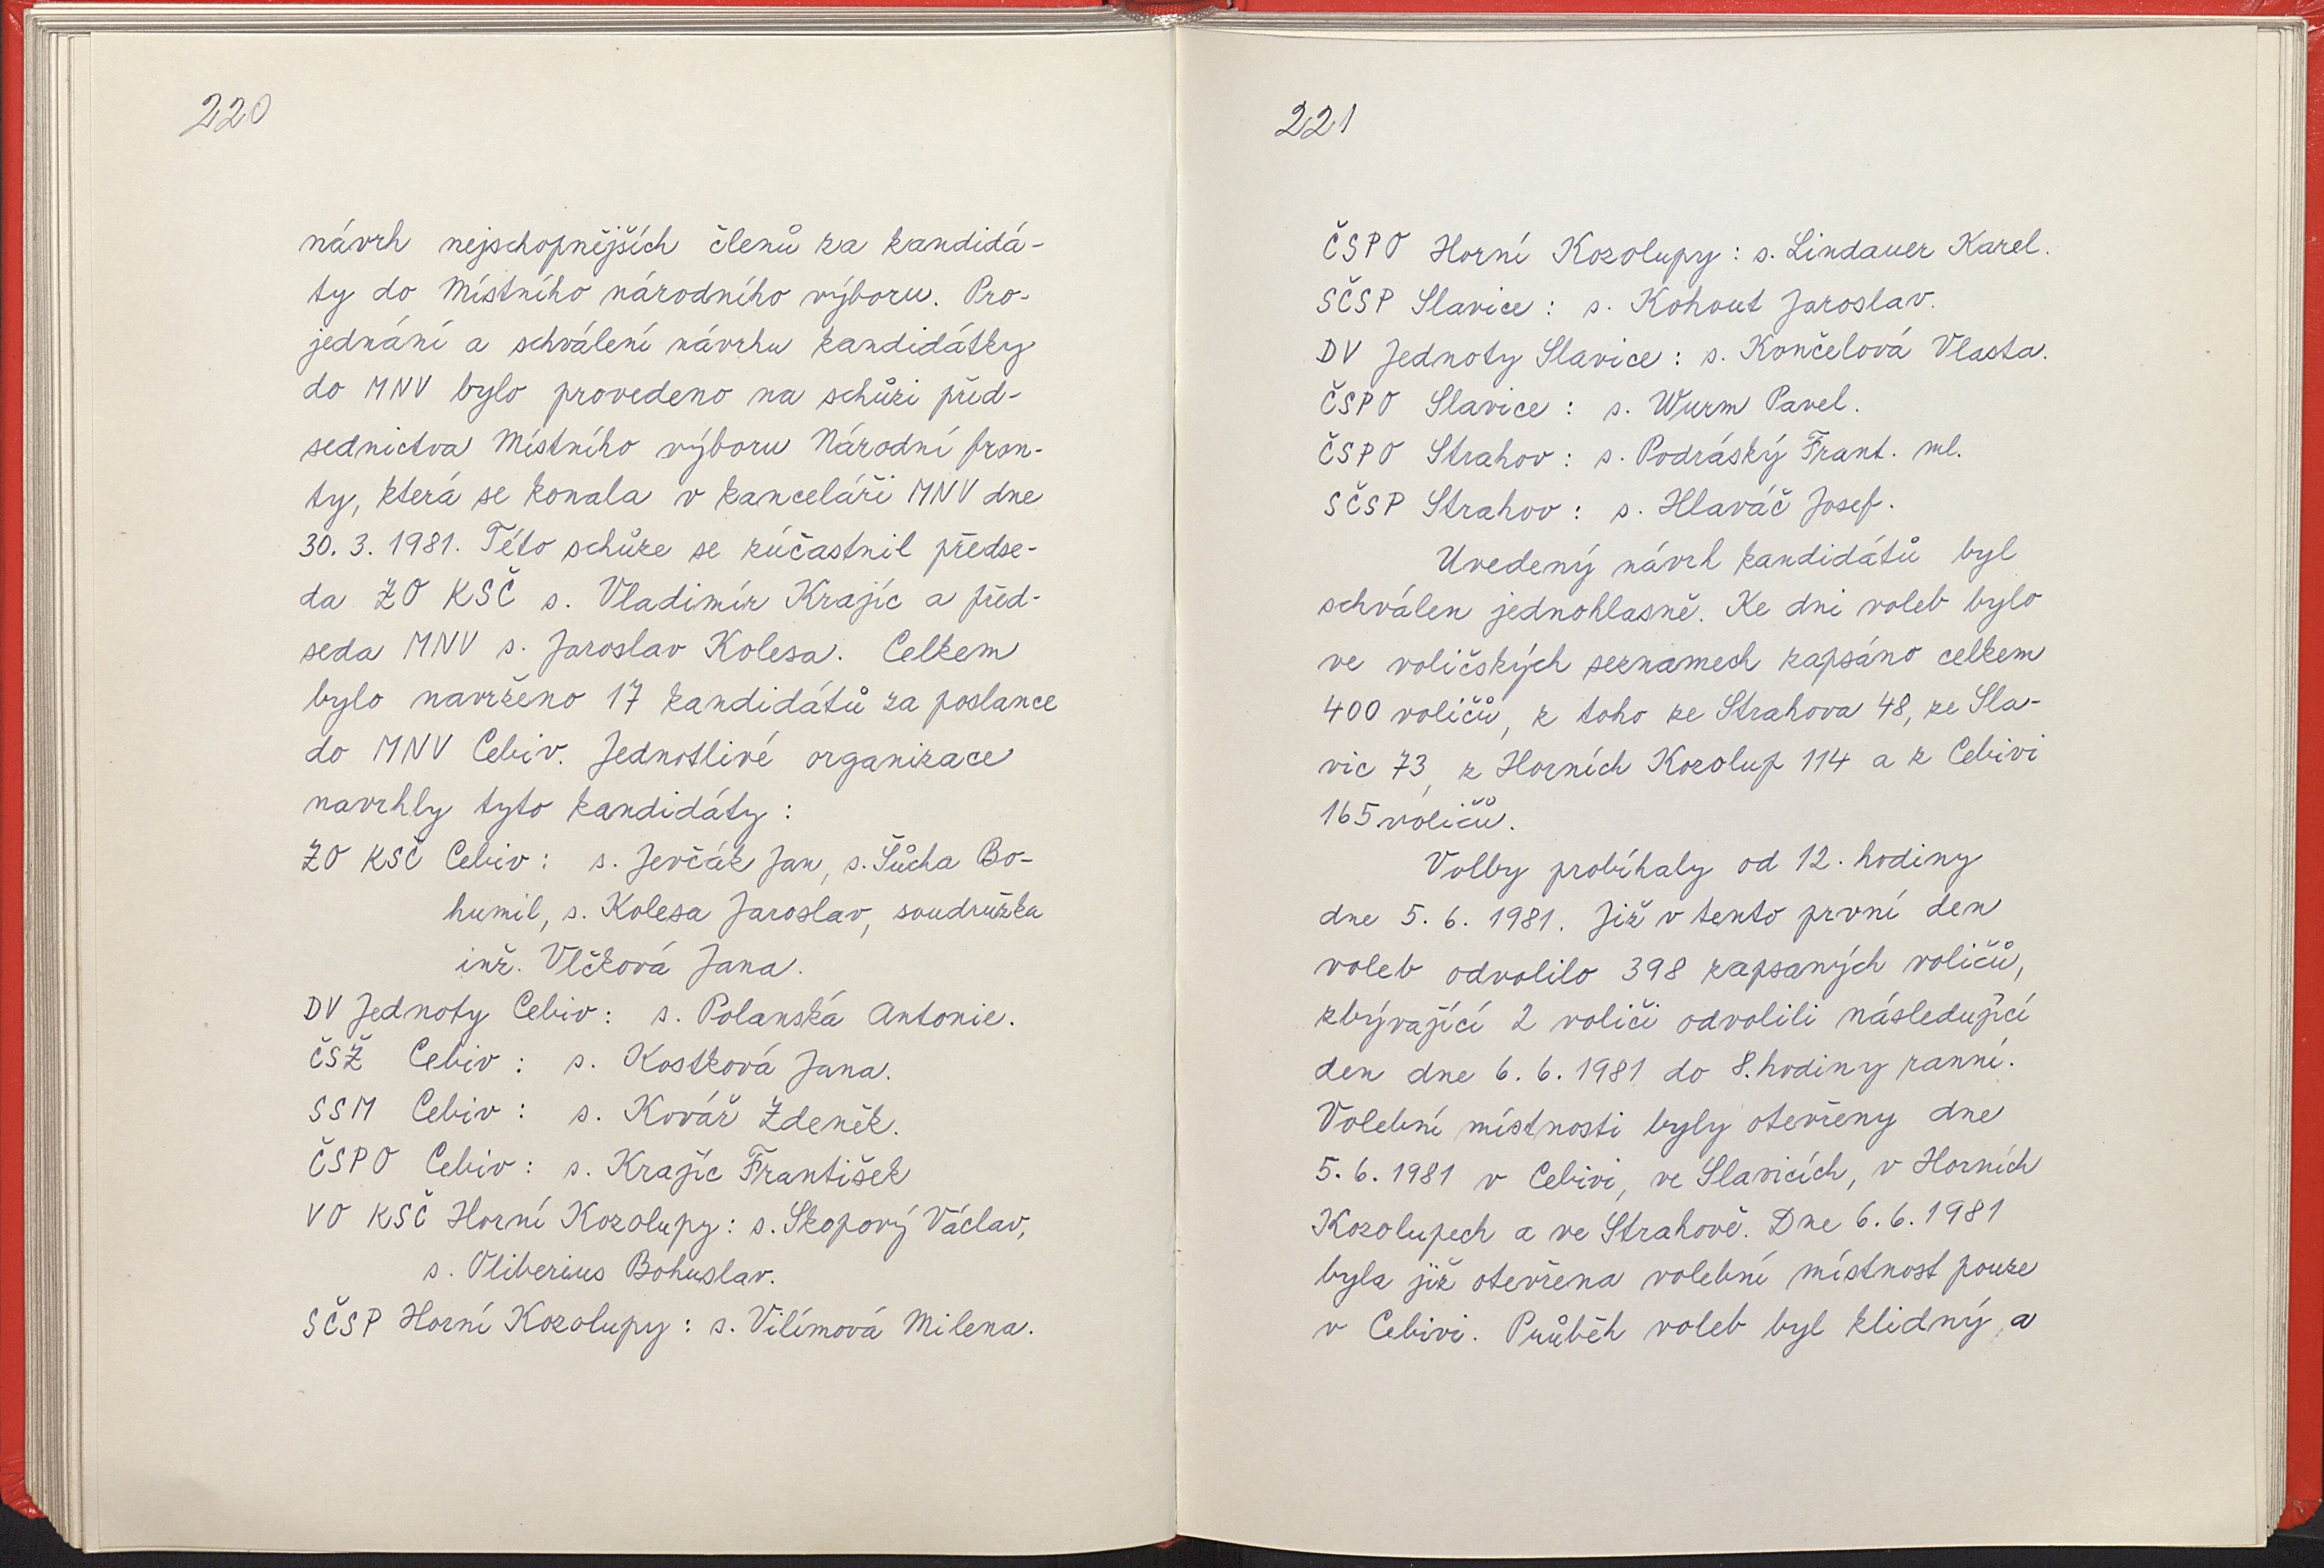 220
návrh nejschopnějších členů za kandidá-
ty do Místního národního výboru. Pro-
jednání a schválení návrhu kandidátky
do MNV bylo provedeno na schůzi před-
sednictva Místního výboru Národní fron-
ty, která se konala v kanceláři MNV dne
30. 3. 1981. Této schůze se zúčastnil předse-
da ZO KSČ s. Vladimír Krajíc a před-
seda MNV s. Jaroslav Kolesa. Celkem
bylo navrženo 17 kandidátů za poslance
do MNV Cebiv. Jednotlivé organizace
navrhly tyto kandidáty :
ZO KSČ Cebiv : s. Jevčák Jan, s. Šůcha Bo-
humil, s. Kolesa Jaroslav, soudružka
inž. Vlčková Jana.
DV Jednoty Cebiv : s. Polanská Antonie.
ČSŽ Cebiv : s. Kostková Jana.
SSM Cebiv : s. Kovář Zdeněk.
ČSPO Cebiv : s. Krajíc František
VO KSČ Horní Kozolupy : s. Skopový Václav,
s. Oliberius Bohuslav.
SČSP Horní Kozolupy : s. Vilímová Milena.
221
ČSPO Horní Kozolupy : s. Lindauer Karel.
SČSP Slavice : s. Kohout Jaroslav.
DV Jednoty Slavice : s. Končelová Vlasta.
ČSPO Slavice : s. Wurm Pavel.
ČSPO Strahov : s. Podráský Frant. ml.
SČSP Strahov : s. Hlaváč Josef.
Uvedený návrh kandidátů byl
schválen jednohlasně. Ke dni voleb bylo
ve voličských seznamech zapsáno celkem
400 voličů, z toho ze Strahova 48, ze Sla-
vic 73, z Horních Kozolup 114 a z Cebivi
165 voličů.
Volby probíhaly od 12. hodiny
dne 5. 6. 1981. Již v tento první den
voleb odvolilo 398 zapsaných voličů,
zbývající 2 voliči odvolili následující
den dne 6. 6. 1981 do 8. hodiny ranní.
Volební místnosti byly otevřeny dne
5. 6. 1981 v Cebivi, ve Slavicích, v Horních
Kozolupech a ve Strahově. Dne 6. 6. 1981
byla již otevřena volební místnost pouze
v Cebivi. Průběh voleb byl klidný, a